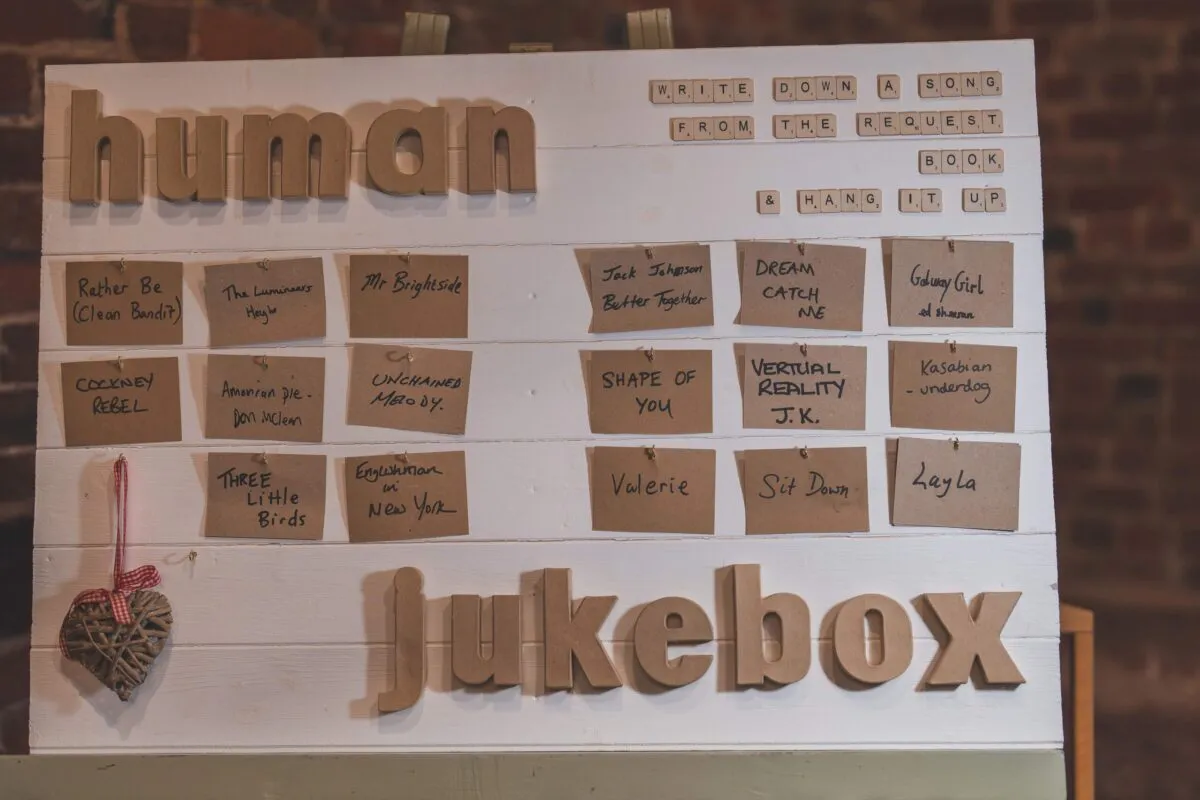 human
WRITE DOWN A SONG
FROM THE REQUEST
BOOK
& HANG IT UP
Rather Be
(Clean Bandit)
The Lumineers
Hey
Mr Brightside
Jack Johnson
Better Together
DREAM
CATCH
ME
Galway Girl
ed sheeran
COCKNEY
REBEL
American Pie -
Don McLean
UNCHAINED
MELODY.
SHAPE OF
YOU
VERTUAL
REALITY
J.K.
Kasabian
- underdog
THREE
Little
Birds
Englishman
in
New York
Valerie
Sit Down
Layla
jukebox